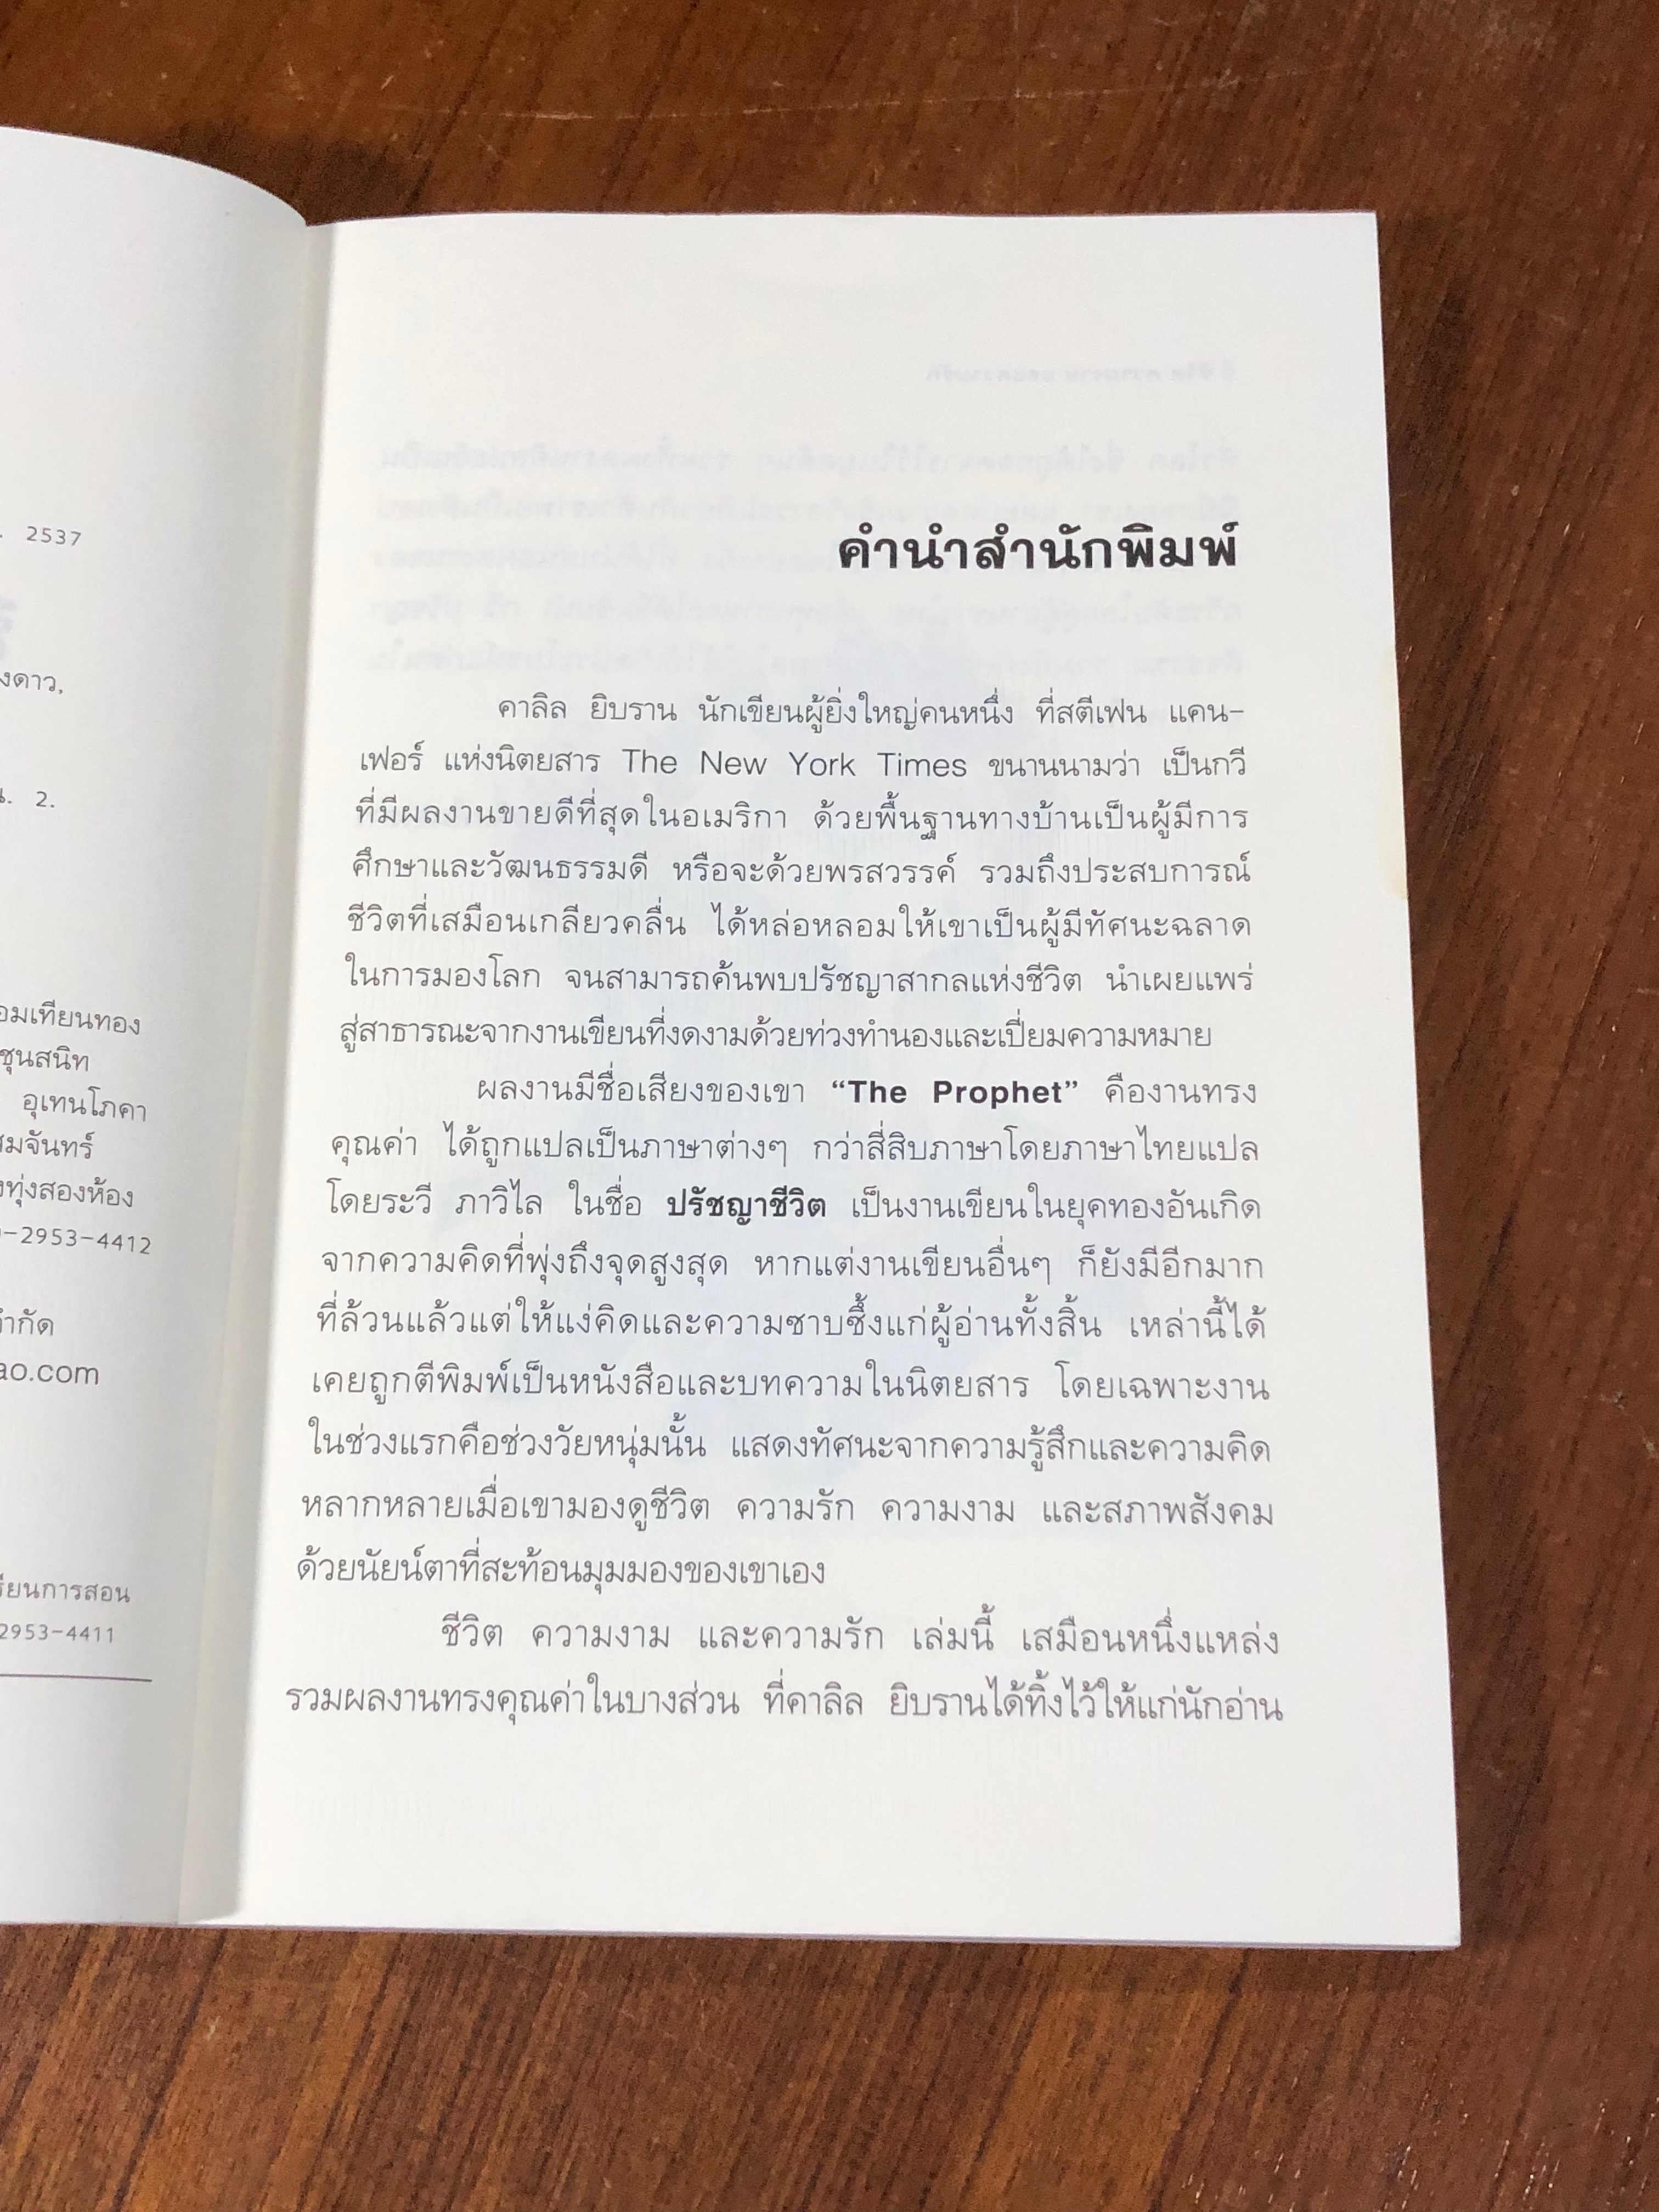 2537
2.
อุเทนโภคา
2953-4412
ao.com
2953-4411
คำนำสำนักพิมพ์
คาลิล ยิบราน นักเขียนผู้ยิ่งใหญ่คนหนึ่ง ที่สตีเฟน แคน-
เฟอร์ แห่งนิตยสาร The New York Times ขนานนามว่า เป็นกวี
ที่มีผลงานขายดีที่สุดในอเมริกา ด้วยพื้นฐานทางบ้านเป็นผู้มีการ
ศึกษาและวัฒนธรรมดี หรือจะด้วยพรสวรรค์ รวมถึงประสบการณ์
ชีวิตที่เสมือนเกลียวคลื่น ได้หล่อหลอมให้เขาเป็นผู้มีทัศนะฉลาด
ในการมองโลก จนสามารถค้นพบปรัชญาสากลแห่งชีวิต นำเผยแพร่
สู่สาธารณะจากงานเขียนที่งดงามด้วยท่วงทำนองและเปี่ยมความหมาย
ผลงานมีชื่อเสียงของเขา “The Prophet” คืองานทรง
คุณค่า ได้ถูกแปลเป็นภาษาต่างๆ กว่าสี่สิบภาษาโดยภาษาไทยแปล
โดยระวี ภาวิไล ในชื่อ ปรัชญาชีวิต เป็นงานเขียนในยุคทองอันเกิด
จากความคิดที่พุ่งถึงจุดสูงสุด หากแต่งานเขียนอื่นๆ ก็ยังมีอีกมาก
ที่ล้วนแล้วแต่ให้แง่คิดและความซาบซึ้งแก่ผู้อ่านทั้งสิ้น เหล่านี้ได้
เคยถูกตีพิมพ์เป็นหนังสือและบทความในนิตยสาร โดยเฉพาะงาน
ในช่วงแรกคือช่วงวัยหนุ่มนั้น แสดงทัศนะจากความรู้สึกและความคิด
หลากหลายเมื่อเขามองดูชีวิต ความรัก ความงาม และสภาพสังคม
ด้วยนัยน์ตาที่สะท้อนมุมมองของเขาเอง
ชีวิต ความงาม และความรัก เล่มนี้ เสมือนหนึ่งแหล่ง
รวมผลงานทรงคุณค่าในบางส่วน ที่คาลิล ยิบรานได้ทิ้งไว้ให้แก่นักอ่าน